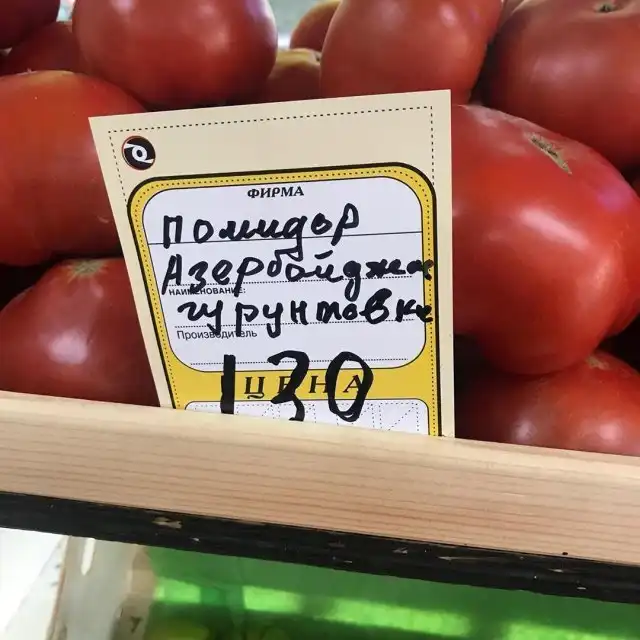 ФИРМА
Помидор
Азербойджа
НАИМЕНОВАНИЕ:
гурунтовка
Производитель
ЦЕНА
130